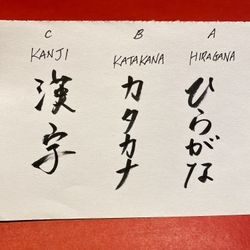 C B A
KANJI KATAKANA HIRAGANA
漢字
カタカナ
ひらがな